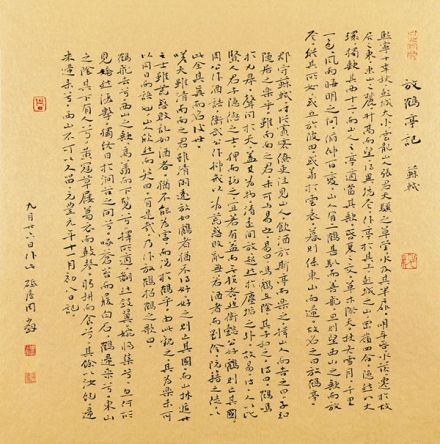 放鶴亭記 蘇軾
熙寧十年秋彭城大水雲龍山人張君天驥之草堂水及其半扉明年春水落遷於故
居之東東山之麓升高而望得異境焉作亭於其上彭城之山岡嶺四合隱然如大
環獨缺其西十二而山人之亭適當其缺春夏之交草木際天秋冬雪月千里
一色風雨晦明之間俯仰百變山人有二鶴甚馴而善飛旦則望西山之缺而放
焉縱其所如或立於陂田或翔於雲表暮則傃東山而歸故名之曰放鶴亭
郡守蘇軾時從賓客僚吏往見山人飲酒於斯亭而樂之揖山人而告之曰子知
隱居之樂乎雖南面之君未可與易也易曰鳴鶴在陰其子和之詩曰鶴鳴
於九皋聲聞於天蓋其為物清遠閒放超然於塵垢之外故易詩人以比
賢人君子隱德之士狎而玩之宜若有益而無損者然衛懿公好鶴則亡其國
周公作酒誥衛武公作抑戒以為荒惑敗亂無若酒者而劉伶阮籍之徒以
此全其真而名後世
嗟夫南面之君雖清閒遠放如鶴者猶不得好好之則亡其國而山林遯世
之士雖荒惑敗亂如酒者猶不能為害而況於鶴乎由此觀之其為樂未可
以同日而語也山人欣然而笑曰有是哉乃作放鶴招鶴之歌曰
鶴飛去兮西山之缺高翔而下覽兮擇所適翻然斂翼婉將集兮忽何所
見矯然復擊獨終日於澗谷之間兮啄蒼苔而履白石鶴歸來兮東山
之陰其下有人兮黃冠草屨葛衣而鼓琴躬耕而食兮其餘以汝飽歸
來歸來兮西山不可以久留元豐元年十一月初八日記
九月廿八日作